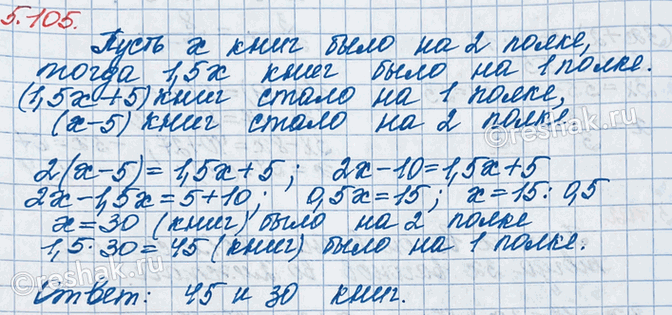 5.105.
Пусть x книг было на 2 полке,
тогда 1,5x книг было на 1 полке.
(1,5x+5) книг стало на 1 полке,
(x-5) книг стало на 2 полке.
2(x-5)=1,5x+5; 2x-10=1,5x+5
2x-1,5x=5+10; 0,5x=15; x=15:0,5
x=30 (книг) было на 2 полке
1,5·30=45 (книг) было на 1 полке.
Ответ: 45 и 30 книг.
©reshak.ru